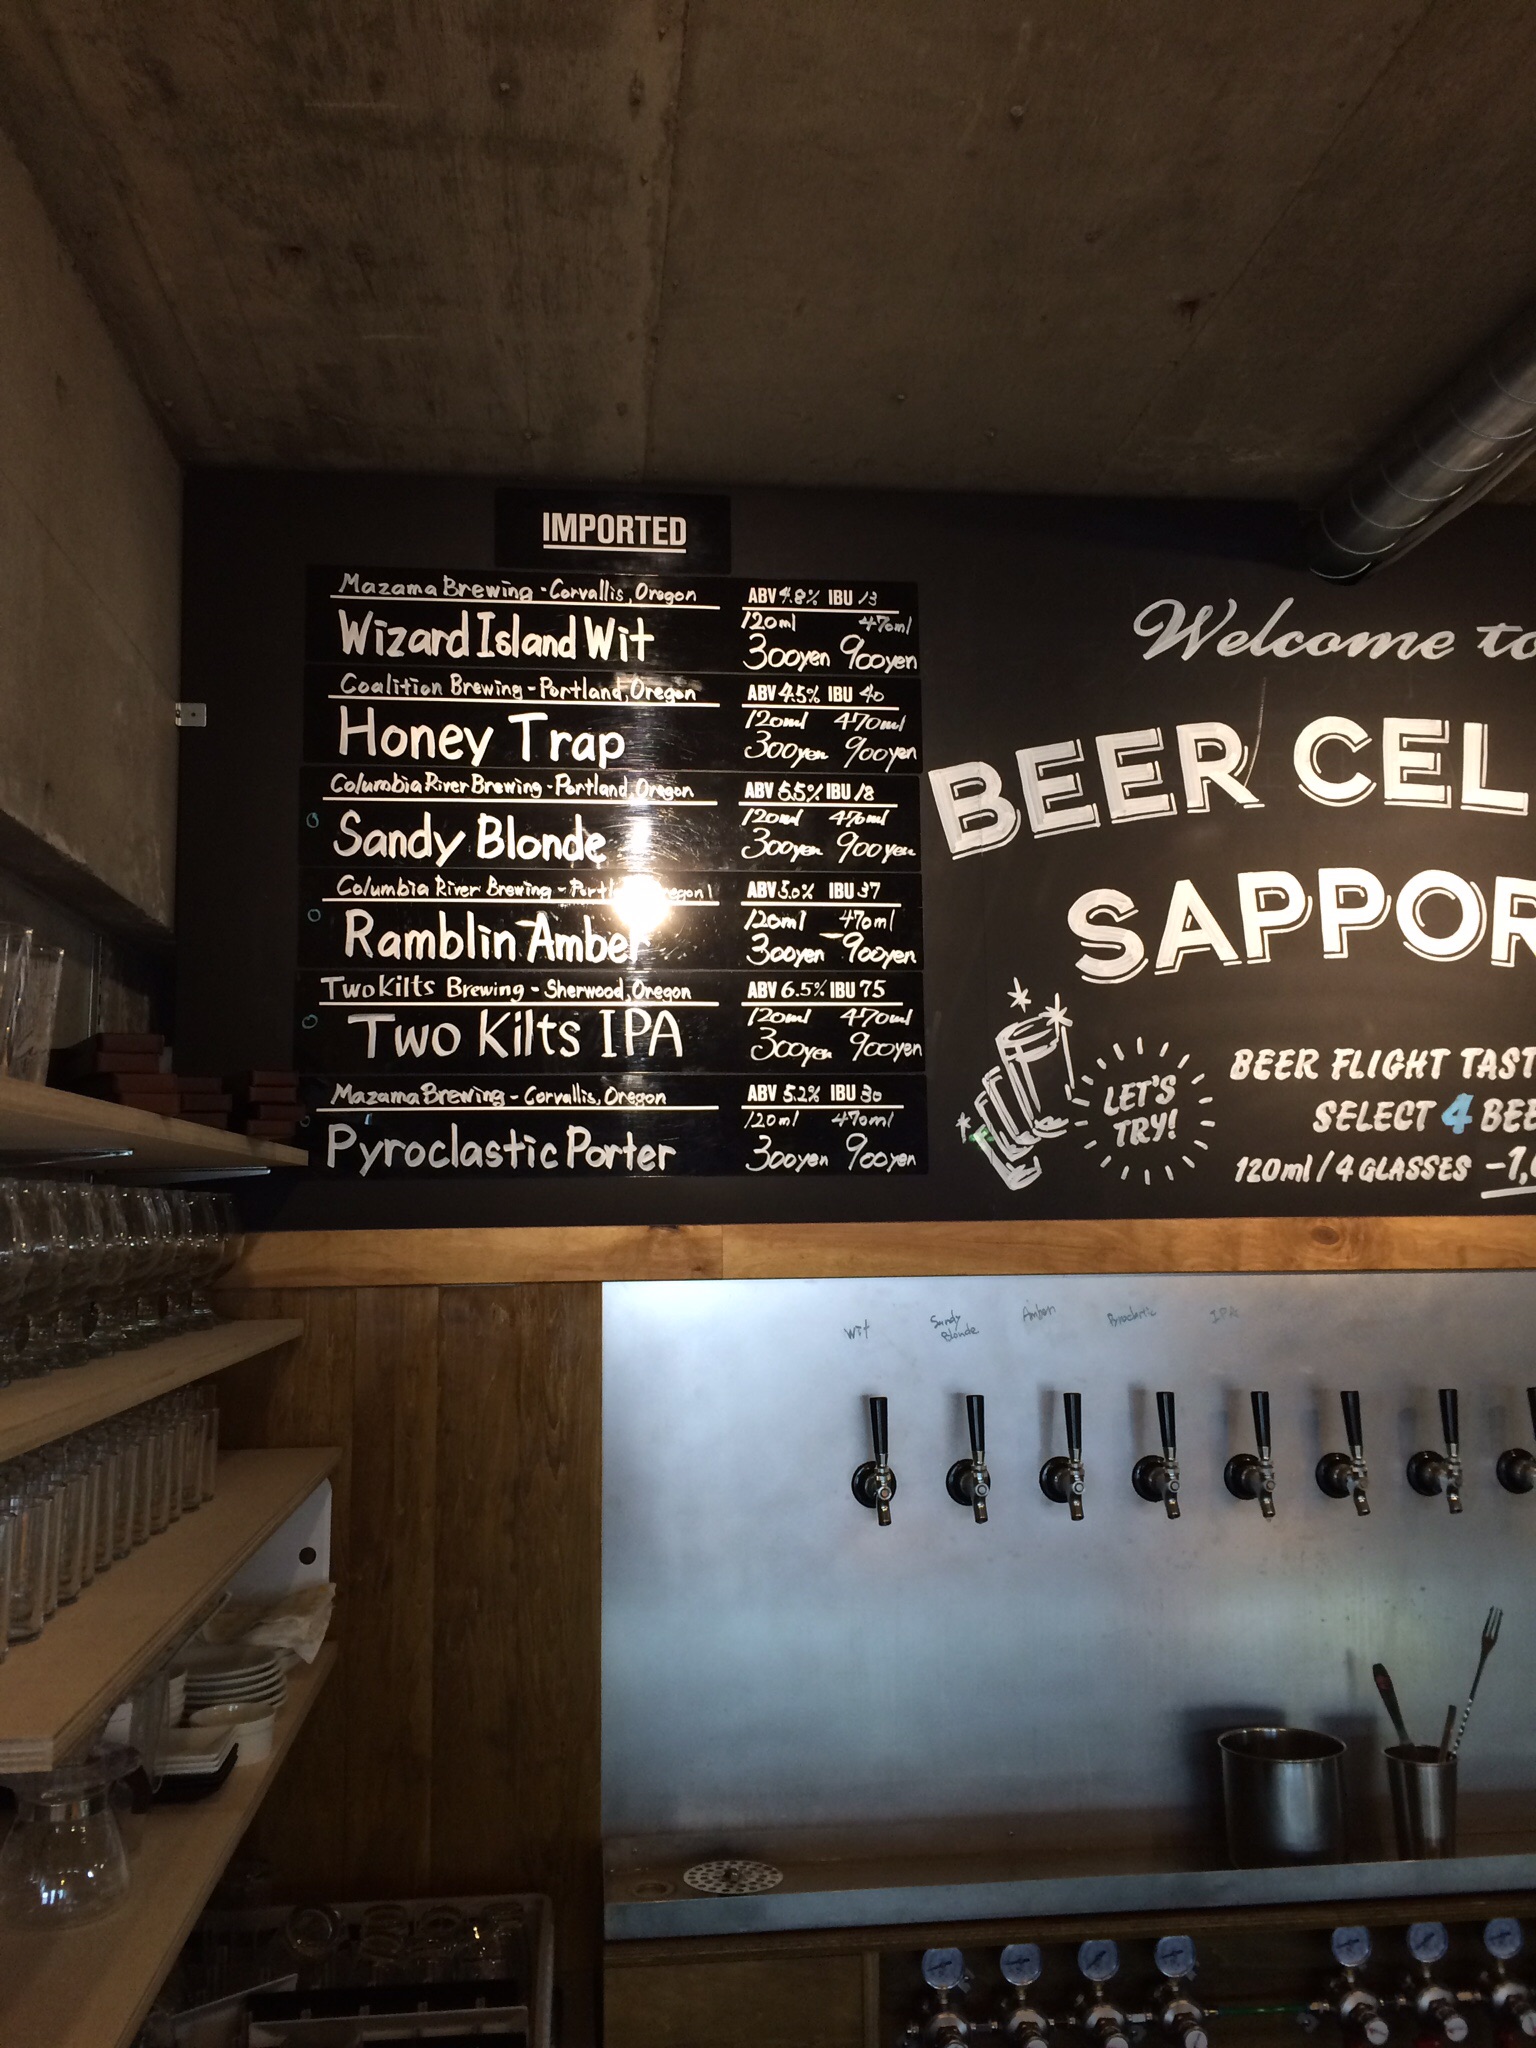 IMPORTED
Mazama Brewing - Corvallis, Oregon ABV 4.8% IBU 13
Wizard Island Wit
120ml 470ml
300yen 900yen
Coalition Brewing - Portland, Oregon ABV 4.5% IBU 40
Honey Trap
120ml 470ml
300yen 900yen
Columbia River Brewing - Portland, Oregon ABV 5.5% IBU 18
Sandy Blonde
120ml 470ml
300yen 900yen
Columbia River Brewing - Portland, Oregon ABV 5.0% IBU 37
Ramblin Amber
120ml 470ml
300yen 900yen
Two Kilts Brewing - Sherwood, Oregon ABV 6.5% IBU 75
Two Kilts IPA
120ml 470ml
300yen 900yen
Mazama Brewing - Corvallis, Oregon ABV 5.2% IBU 30
Pyroclastic Porter
120ml 470ml
300yen 900yen
Welcome to
BEER CEL
SAPPOR
LET'S
TRY!
BEER FLIGHT TAST
SELECT 4 BEE
120ml / 4 GLASSES -1,
Wit
Sandy
Blonde
Amber
IPA